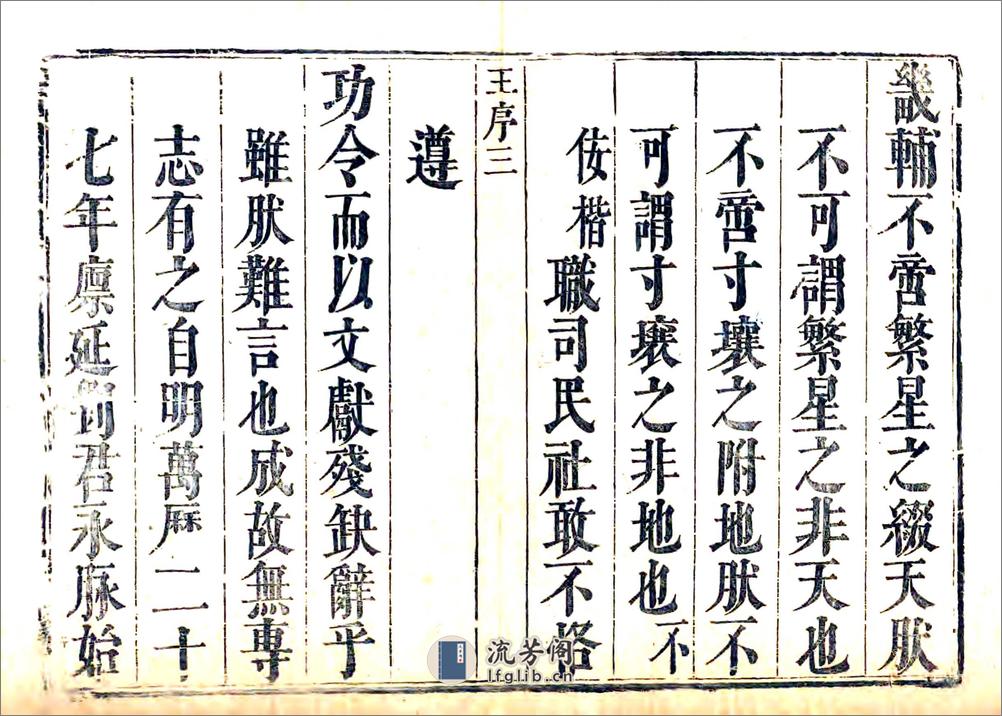 畿輔不啻繁星之綴天肰
不可謂繁星之非天也
不啻寸壤之附地肰不
可謂寸壤之非地也不
佞楷職司民社敢不恪
王序三
遵
功令而以文獻殘缺辭乎
雖肰難言也成故無專
志有之自明萬厤二十
七年廪延君永脉始
流芳阁
lfglib.cn